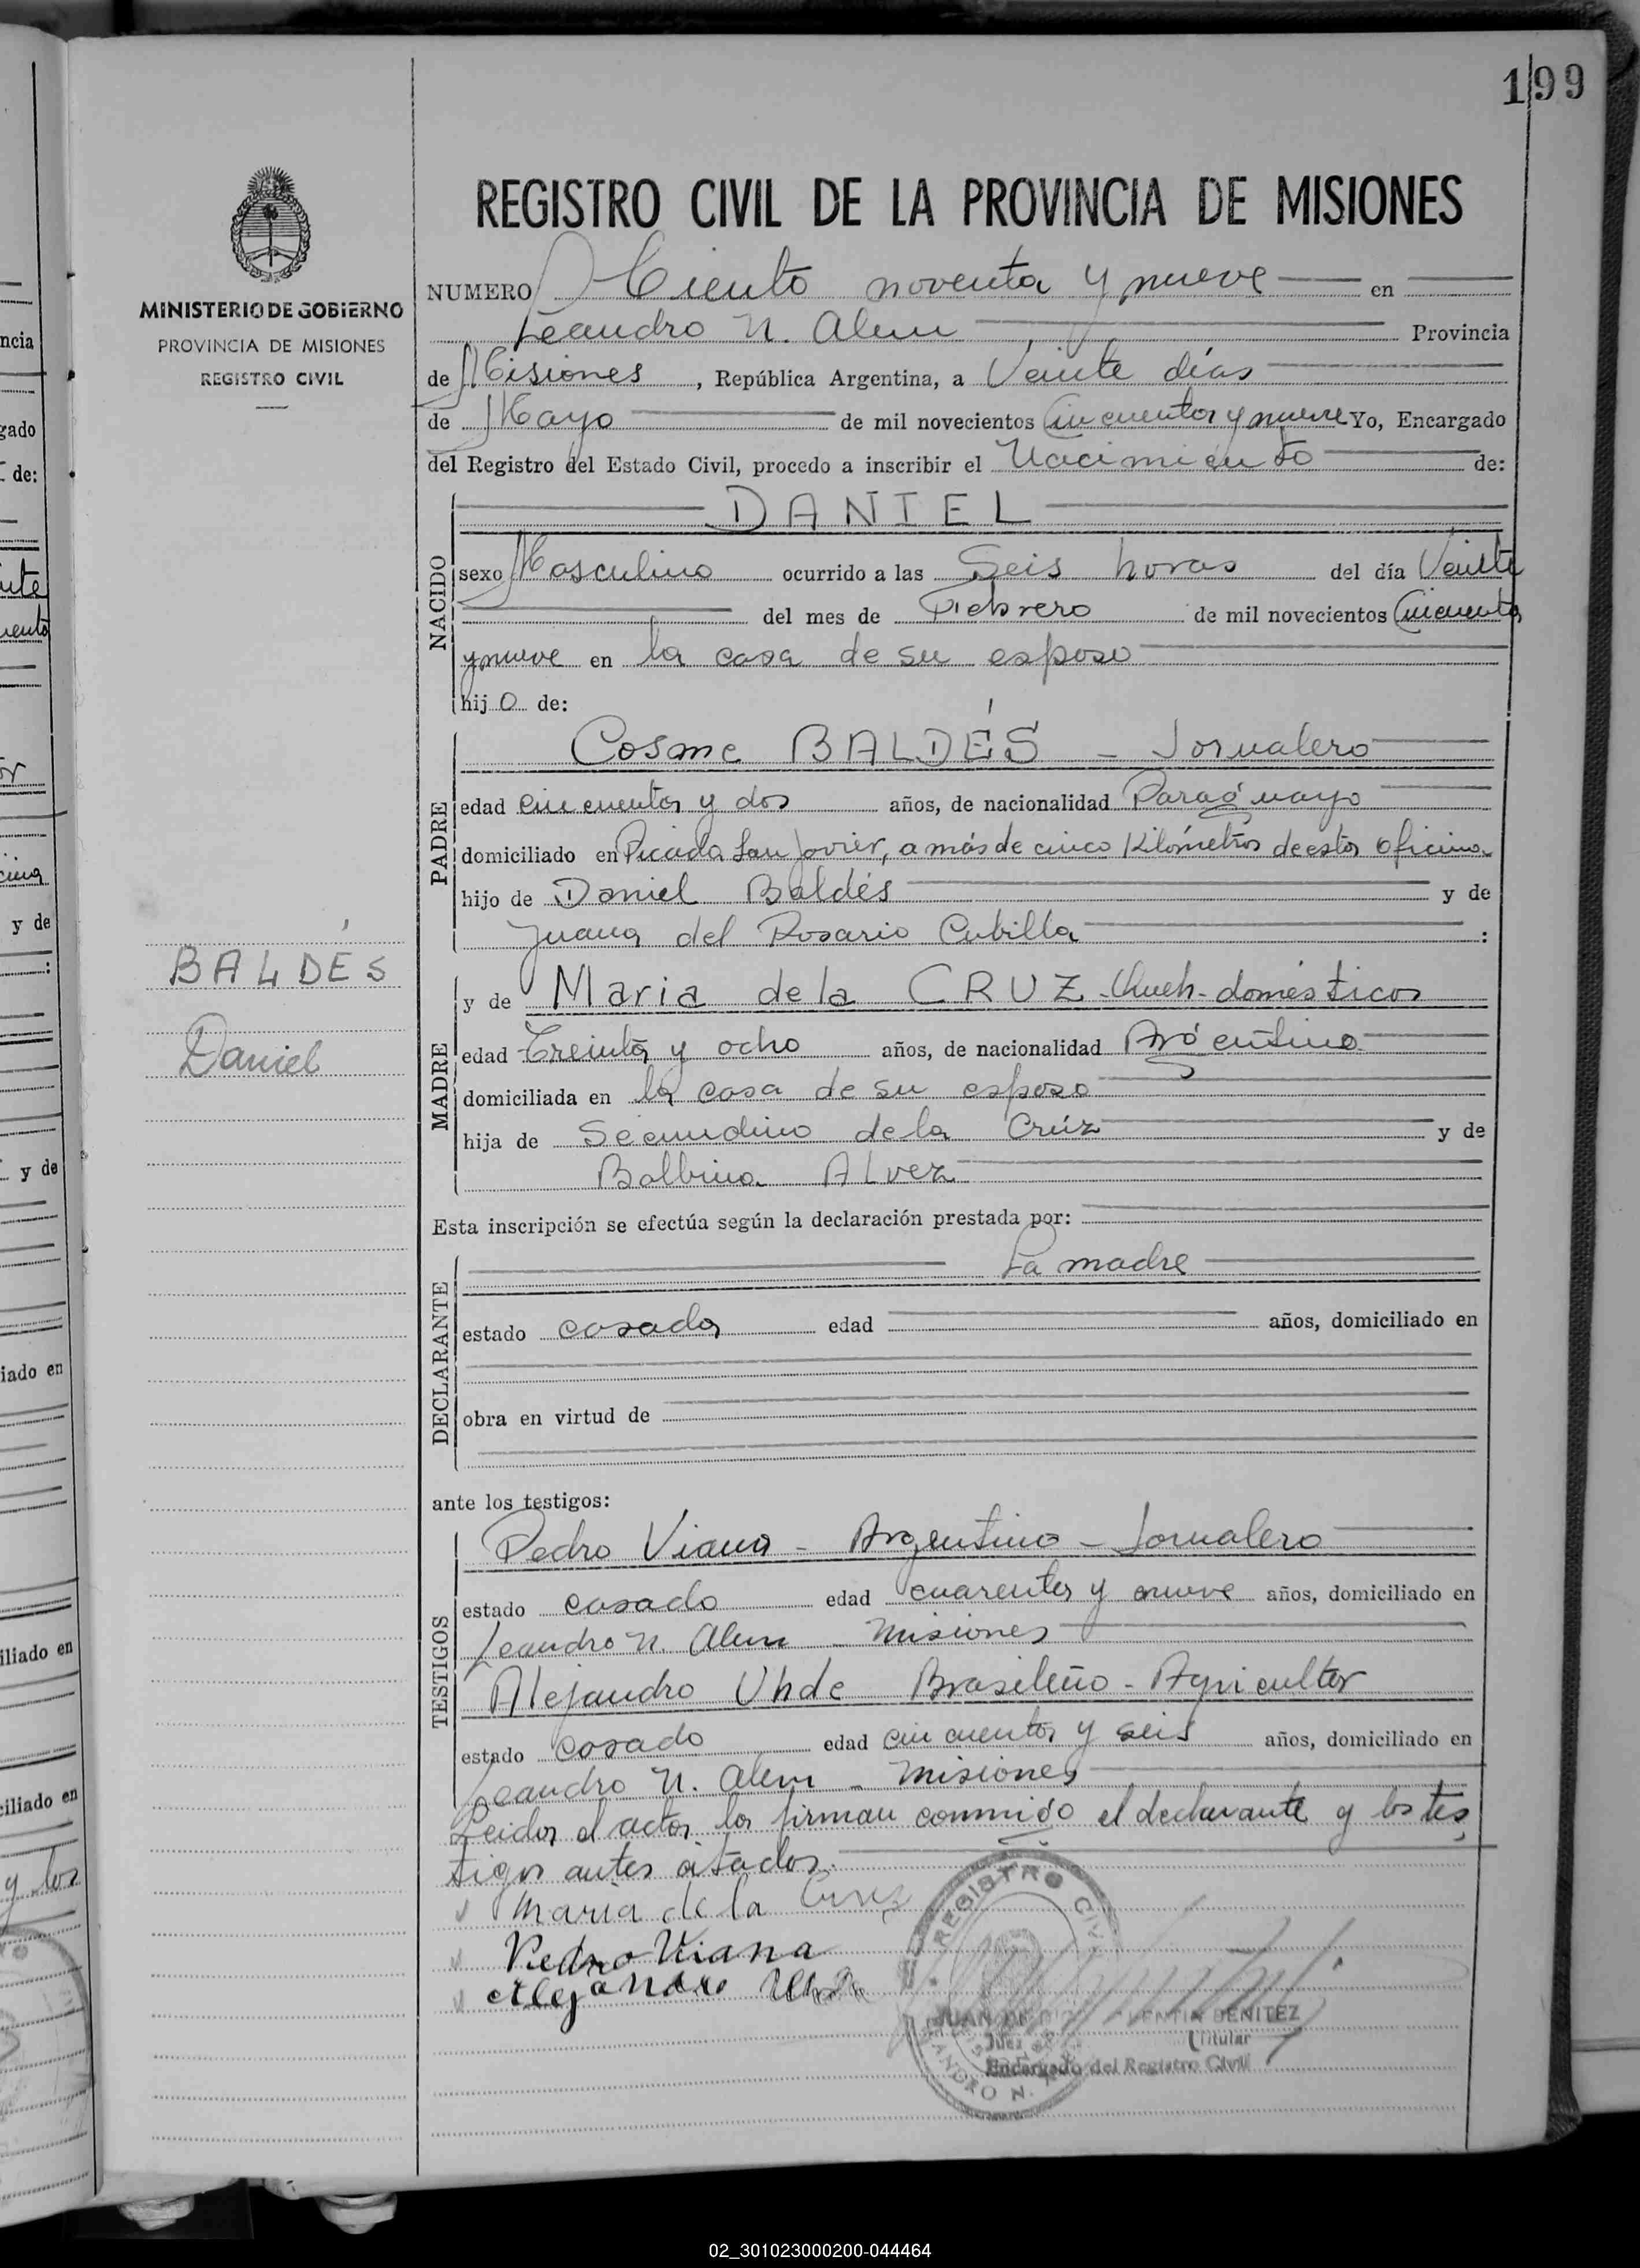 199
REGISTRO CIVIL DE LA PROVINCIA DE MISIONES
MINISTERIO DE GOBIERNO
PROVINCIA DE MISIONES
REGISTRO CIVIL
NUMERO Ciento noventa y nueve en
Leandro N. Alem Provincia
de Misiones, República Argentina, a Veinte días
de Mayo de mil novecientos Cincuenta y nueve Yo, Encargado
del Registro del Estado Civil, procedo a inscribir el Nacimiento de:
NACIDO
DANIEL
sexo Masculino ocurrido a las Seis horas del día Veinte
del mes de Febrero de mil novecientos Cincuenta
y nueve en la casa de su esposo
hijo de:
PADRE
Cosme BALDÉS - Jornalero
edad cincuenta y dos años, de nacionalidad Paraguayo
domiciliado en Picada San Javier, a más de cinco Kilómetros de esta oficina
hijo de Daniel Baldés y de
Juana del Rosario Cubilla :
BALDÉS
Daniel
MADRE
y de Maria de la CRUZ - Queh. domésticos
edad Treinta y ocho años, de nacionalidad Argentina
domiciliada en la casa de su esposo
hija de Secundino de la Crúz y de
Balbina Alvez
Esta inscripción se efectúa según la declaración prestada por:
DECLARANTE
La madre
estado casada edad años, domiciliado en
obra en virtud de
ante los testigos:
TESTIGOS
Pedro Viana - Argentino - Jornalero
estado casado edad cuarenta y nueve años, domiciliado en
Leandro N. Alem - Misiones
Alejandro Uhde Brasileño - Agricultor
estado casado edad cincuenta y seis años, domiciliado en
Leandro N. Alem - Misiones
Leida el acta, la firman conmigo el declarante y los tes
tigos antes citados.
Maria de la Cruz
Pedro Viana
Alejandro Uhde
REGISTRO CIVIL
JUAN DE VALENTIN BENITEZ
Juez Titular
Encargado del Registro Civil
02_301023000200-044464